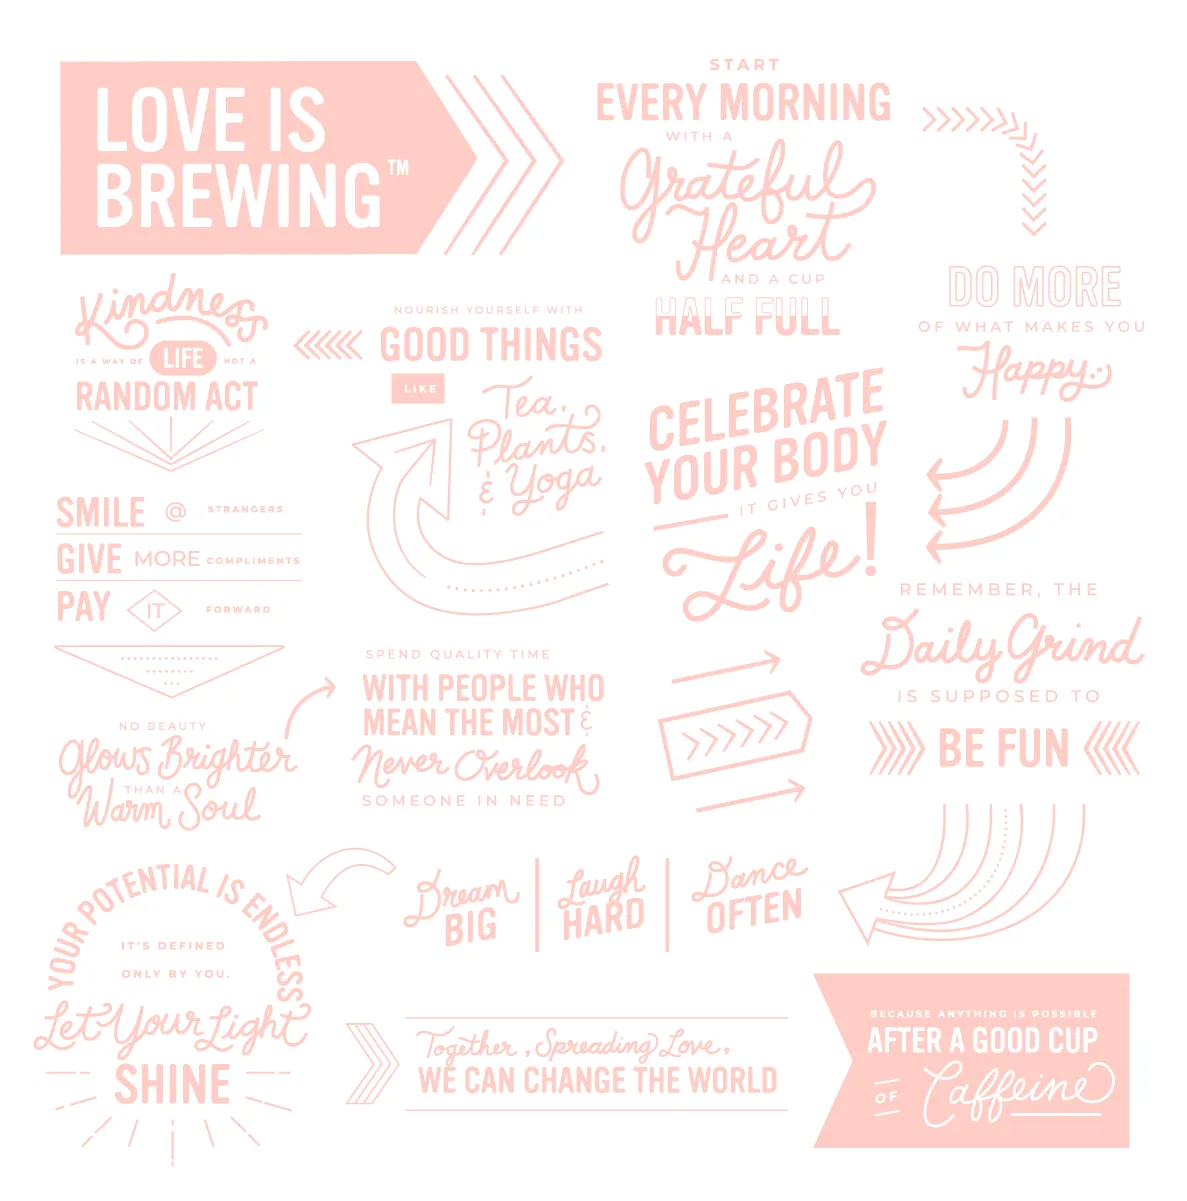 LOVE IS
BREWING™
START
EVERY MORNING
WITH A
Grateful
Heart
AND A CUP
HALF FULL
DO MORE
OF WHAT MAKES YOU
Happy
Kindness
IS A WAY OF LIFE NOT A
RANDOM ACT
NOURISH YOURSELF WITH
GOOD THINGS
LIKE
Tea,
Plants,
& Yoga
CELEBRATE
YOUR BODY
IT GIVES YOU
Life!
SMILE @ STRANGERS
GIVE MORE COMPLIMENTS
PAY IT FORWARD
REMEMBER, THE
Daily Grind
IS SUPPOSED TO
BE FUN
NO BEAUTY
Glows Brighter
THAN A
Warm Soul
SPEND QUALITY TIME
WITH PEOPLE WHO
MEAN THE MOST &
Never Overlook
SOMEONE IN NEED
YOUR POTENTIAL IS ENDLESS
IT'S DEFINED
ONLY BY YOU.
Let Your Light
SHINE
Dream
BIG
Laugh
HARD
Dance
OFTEN
Together, Spreading Love,
WE CAN CHANGE THE WORLD
BECAUSE ANYTHING IS POSSIBLE
AFTER A GOOD CUP
OF Caffeine